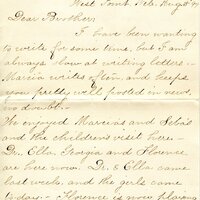 West Point, Aug 8
Dear Brother,
I have been wanting
to write for some time, but I am
always slow at writing letters —
Marcia writes often, and keeps
you pretty well posted in news,
no doubt.
We enjoyed Marcia's and
the children's visit here —
Dr. Ella, Georgia and Florence
are here now. Dr. & Ella came
last week, and the girls came
today — Florence is now playing